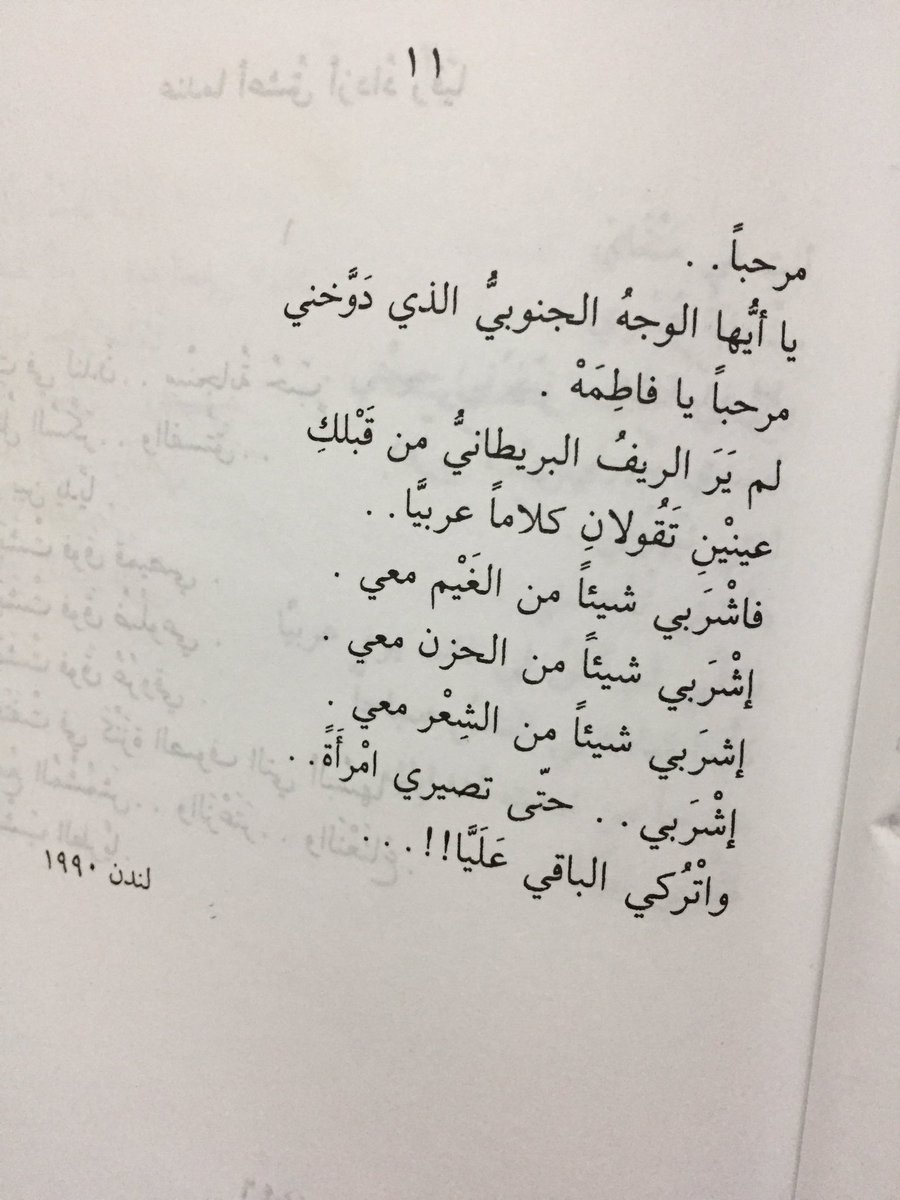 ١١
مرحباً. .
يا أيُّها الوجهُ الجنوبيُّ الذي دَوَّخني
مرحباً يا فاطِمَهْ .
لم يَرَ الريفُ البريطانيُّ من قَبْلكِ
عينْينِ تَقُولانِ كلاماً عربيَّا. .
فاشْرَبي شيئاً من الغَيْم معي .
إشْرَبي شيئاً من الحزن معي .
إشرَبي شيئاً من الشِعْر معي .
إشْرَبي. . حتّى تصيري امْرأَةً. .
واتْرُكي الباقي عَلَيَّا!!. . .
لندن ١٩٩٠